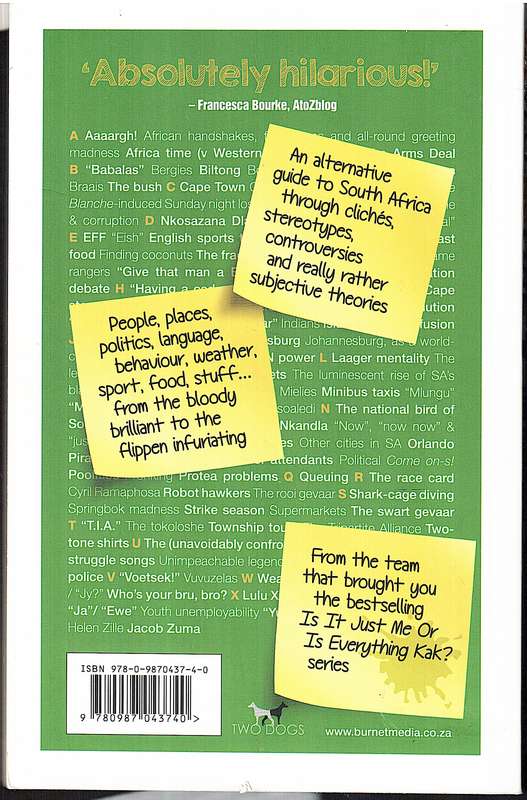 ‘Absolutely hilarious!’
– Francesca Bourke, AtoZblog
A Aaaargh! African handshakes, and all-round greeting
madness Africa time (v Western Arms Deal
B “Babalas” Bergies Biltong
Braais The bush C Cape Town
Blanche-induced Sunday night
& corruption D Nkosazana
E EFF “Eish” English sports
food Finding coconuts The
rangers “Give that man a
debate H “Having a
An alternative
guide to South Africa
through clichés,
stereotypes,
controversies
and really rather
subjective theories
Indians
Johannesburg, as a world-
power L Laager mentality The
The luminescent rise of SA’s
Mielies Minibus taxis “Mlungu”
N The national bird of
Nkandla “Now”, “now now” &
Other cities in SA Orlando
attendants Political Come on-s!
People, places,
politics, language,
behaviour, weather,
sport, food, stuff...
from the bloody
brilliant to the
flippen infuriating
Protea problems Q Queuing R The race card
Cyril Ramaphosa Robot hawkers The rooi gevaar S Shark-cage diving
Springbok madness Strike season Supermarkets The swart gevaar
T “T.I.A.” The tokoloshe Township Alliance Two-
tone shirts U The (unavoidably
struggle songs Unimpeachable
police V “Voetsek!” Vuvuzelas W
/ “Jy?” Who’s your bru, bro? X Lulu
“Ja”/ “Ewe” Youth unemployability
Helen Zille Jacob Zuma
From the team
that brought you
the bestselling
Is It Just Me Or
Is Everything Kak?
series
ISBN 978-0-9870437-4-0
9 780987 043740 >
TWO DOGS
www.burnetmedia.co.za